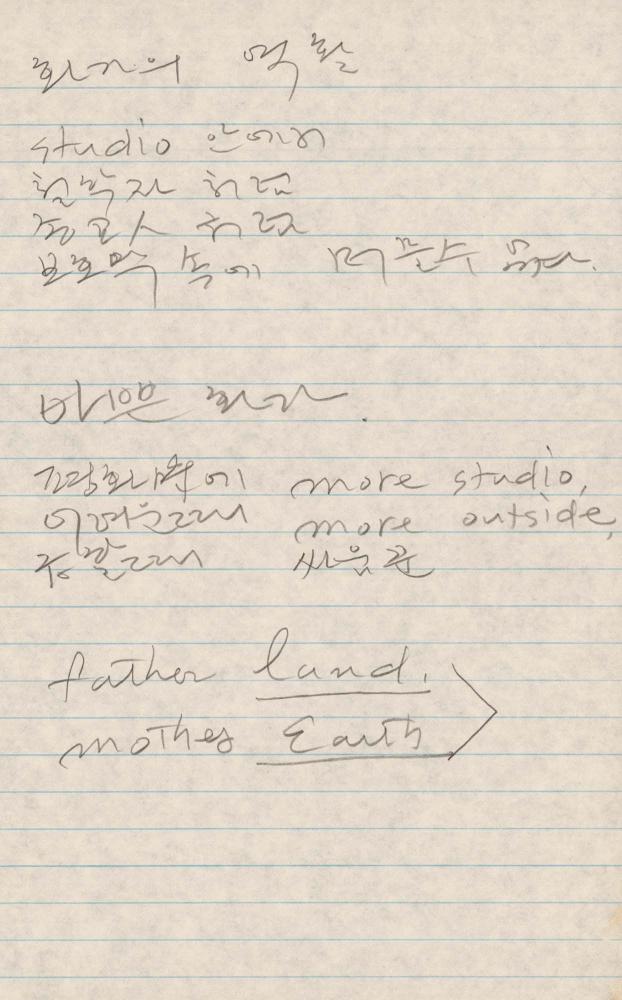 화가의 역활
studio 안에서
철학자 처럼
종교인 처럼
보호막 속에 머물수 없다.
바쁜 화가.
평화시에 more studio,
어려운그때 more outside,
종말그때 싸움꾼
father land.
mother Earth